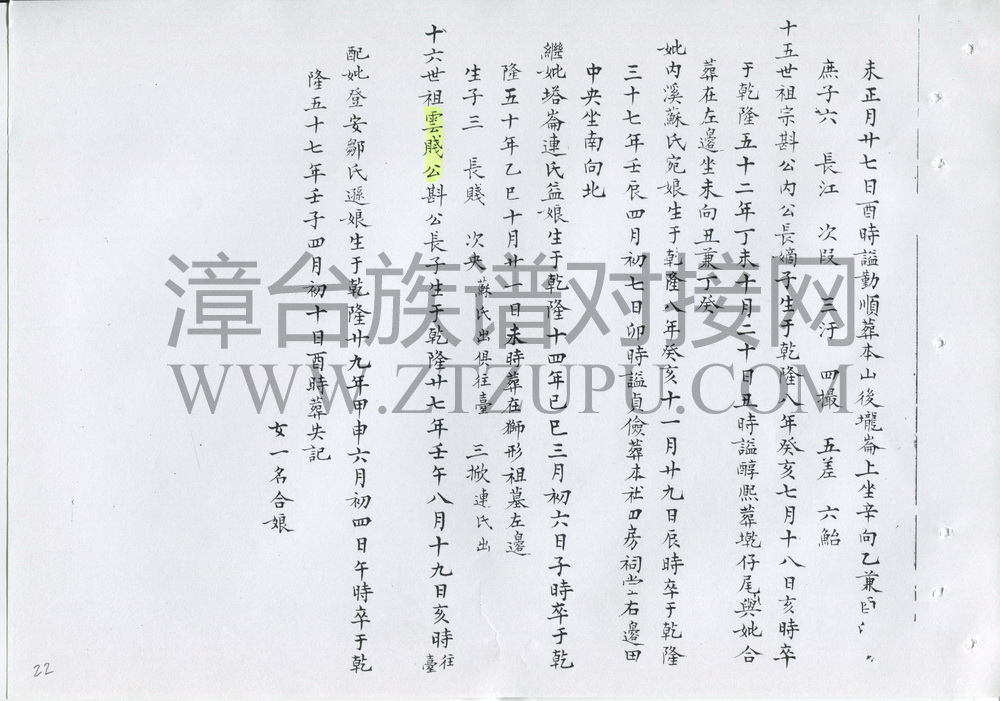 未正月廿七日酉時謚勤順葬本山後壠崙上坐辛向乙兼
庶子六 長江 次段 三汙 四撮 五差 六鮐
十五世祖宗斟公內公長嫡子生于乾隆八年癸亥七月十八日亥時卒
于乾隆五十二年丁未十月二十日丑時謚醇熙葬墘仔尾與妣合
葬在左邊坐未向丑兼丁癸
妣內溪蘇氏宛娘生于乾隆八年癸亥十一月廿九日辰時卒于乾隆
三十七年壬辰四月初七日卯時謚貞儉葬本社田房祠堂右邊田
中央坐南向北
繼妣塔崙連氏益娘生于乾隆十四年己巳三月初六日子時卒于乾
隆五十年乙巳十月廿一日未時葬在獅形祖墓左邊
生子三 長賤 次央蘇氏出俱往臺 三掀連氏出
十六世祖雲賤公斟公長子生于乾隆廿七年壬午八月十九日亥時往臺
配妣登安鄒氏遜娘生于乾隆廿九年甲申六月初四日午時卒于乾
隆五十七年壬子四月初十日酉時葬失記
女一名合娘
漳台族谱对接网
WWW.ZTZUPU.COM
22